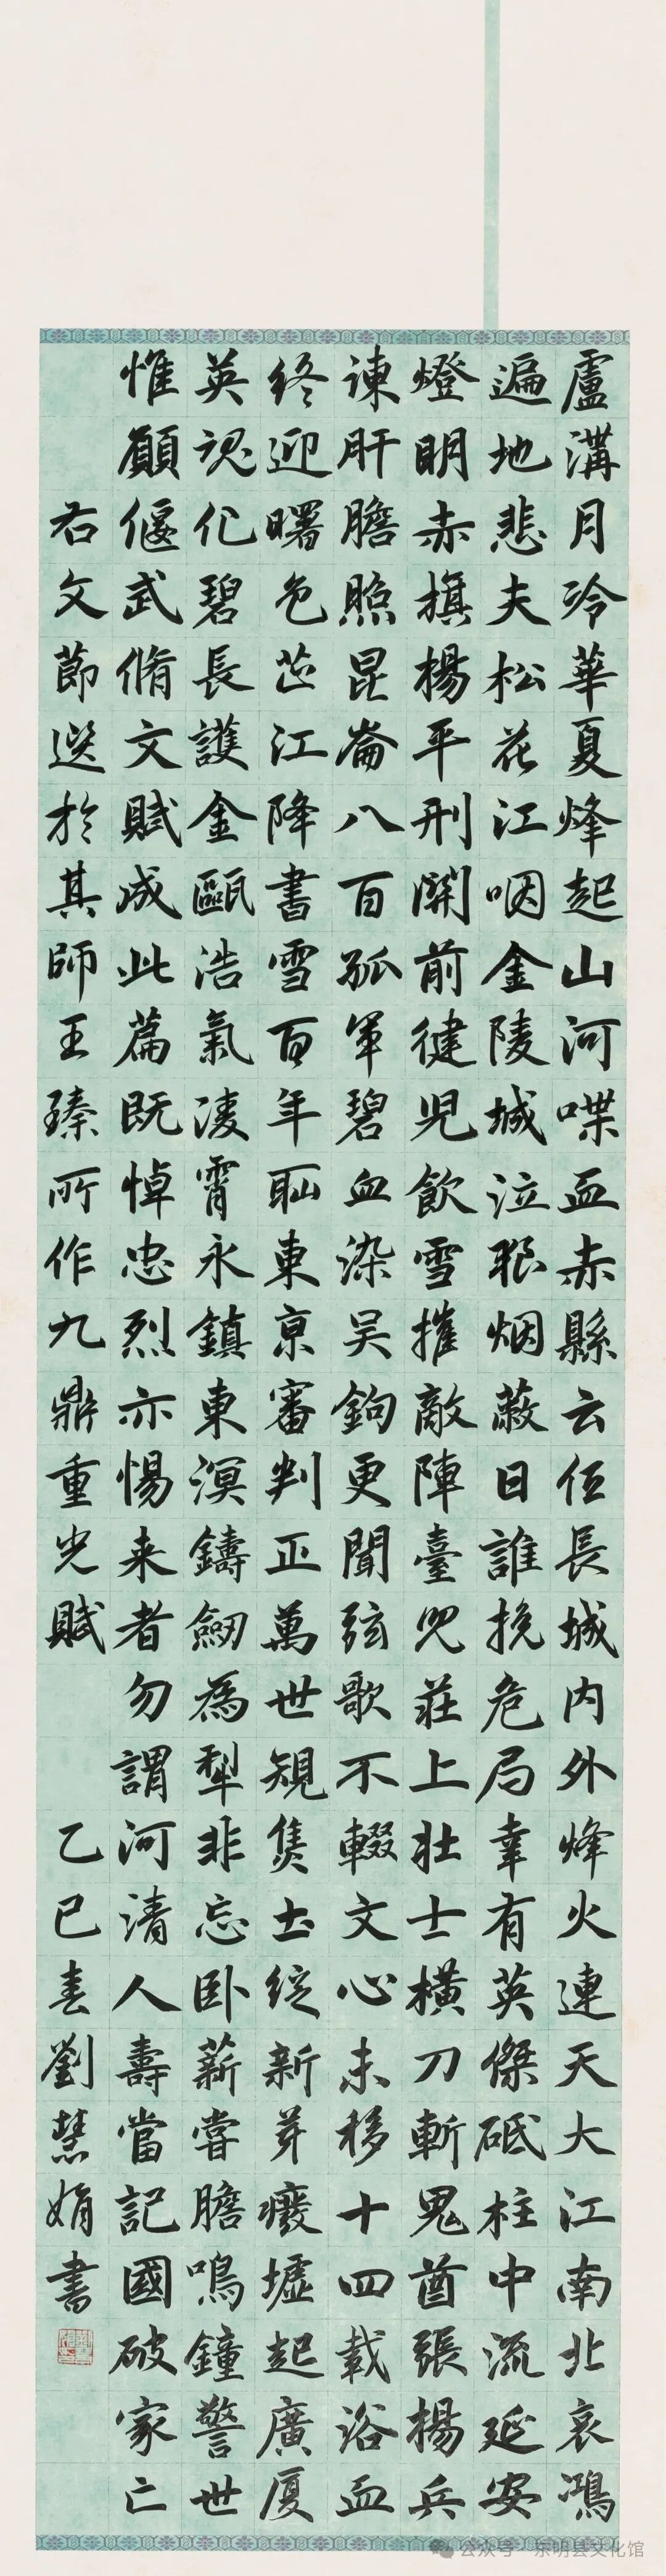 盧溝月冷華夏烽起山河喋血赤縣云何長城内外烽火連天大江南北哀鴻
遍地悲夫松花江咽金陵城泣狼烟蔽日誰挽危局幸有英傑砥柱中流延安
燈明赤旗揚平刑關前健兒飲雪摧敵陣臺兒莊上壯士橫刀斬鬼酋張楊兵
諫肝膽照昆崙八百孤軍碧血染吴鉤更聞弦歌不輟文心未移十四載浴血
終迎曙色芷江降書雪百年恥東京審判正萬世規焦土綻新芽癈墟起廣厦
英魂化碧長護金甌浩氣凌霄永鎮東溟鑄劒為犁非忘卧薪嘗膽鳴鐘警世
惟願偃武脩文賦成此篇既悼忠烈亦惕来者勿謂河清人壽當記國破家亡
右文節選於其師王臻所作九鼎重光賦 乙巳春劉慧娟書
公众号·东明县文化馆